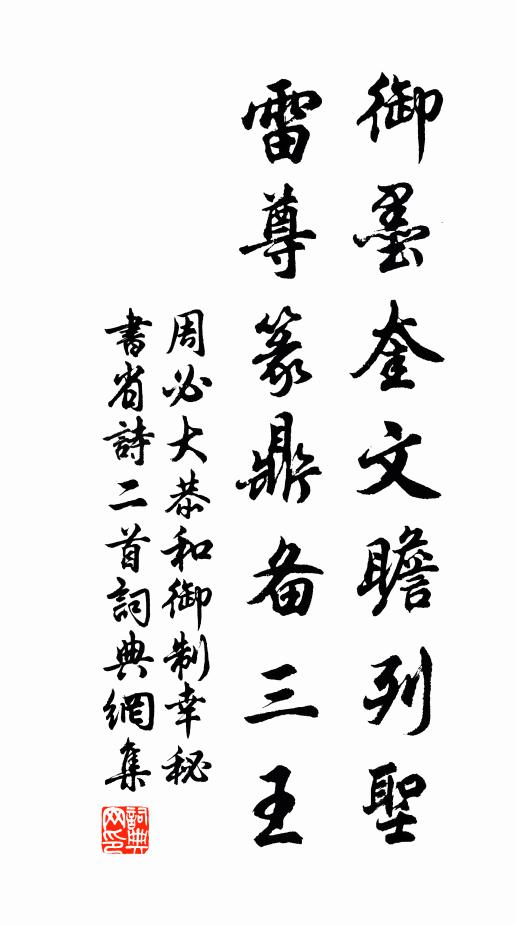 御墨奎文瞻列聖
雷尊篆鼎备三王
周必大恭和御制幸秘
書省詩二首詞典網集
詞典網印